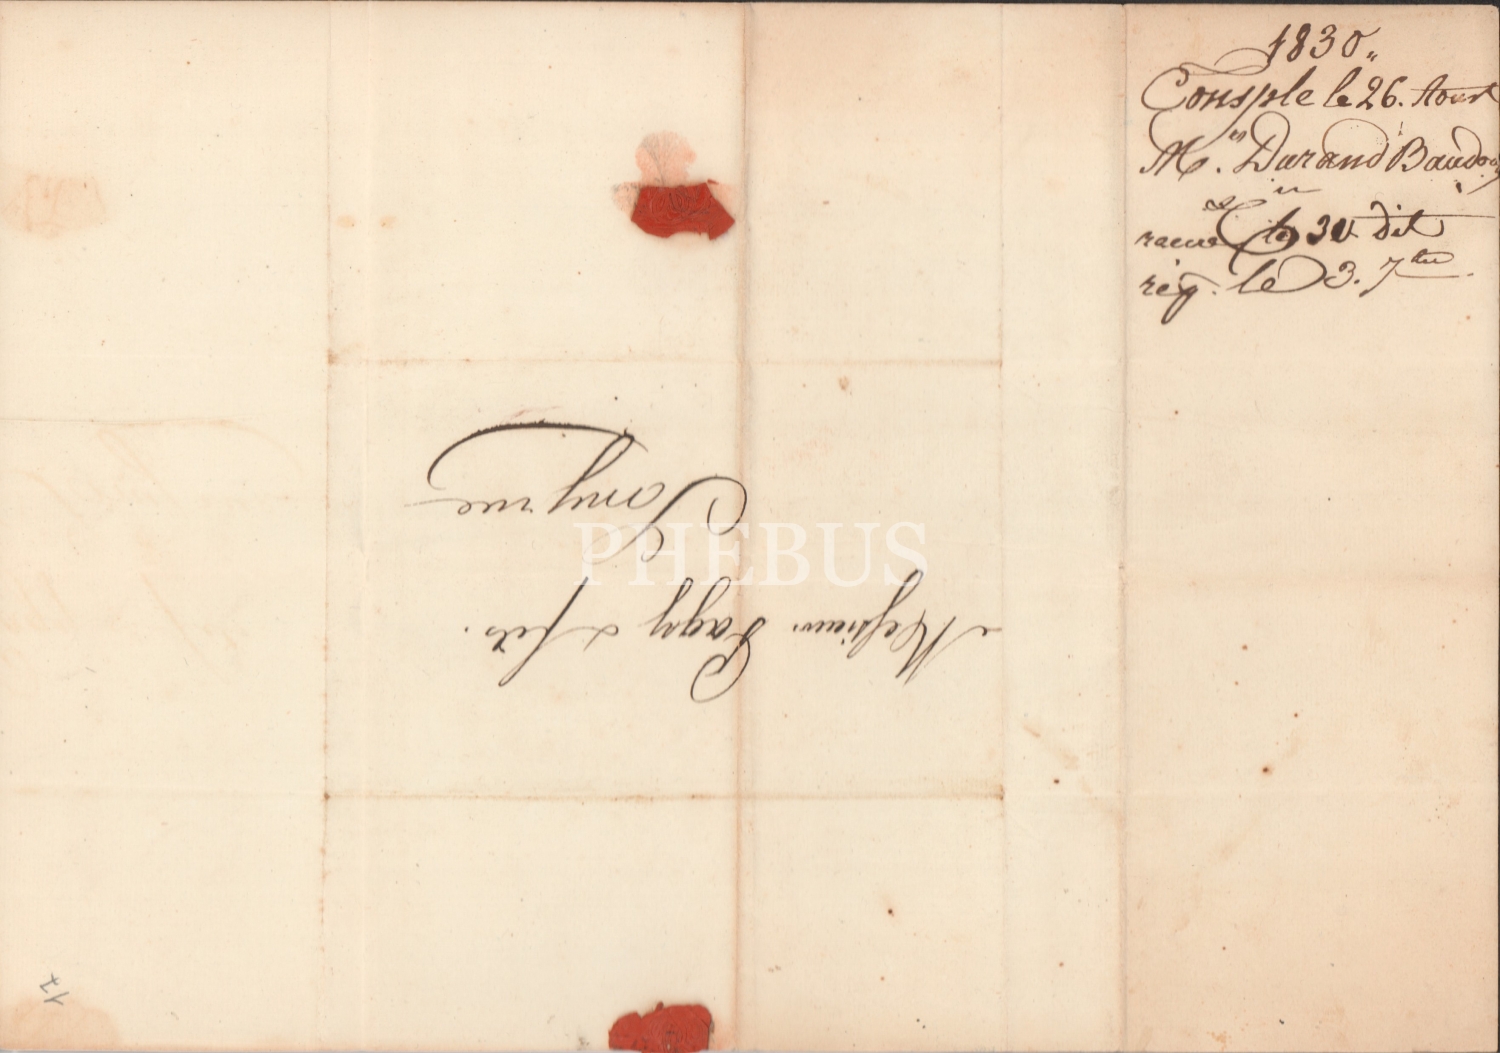 1830„
Consple le 26. Aoust
M.rs Durand Baudouy
le 30 Dit
rég. le 3. 7bre
Messieurs Pagy & fils.
Smyrne
PHEBUS
17